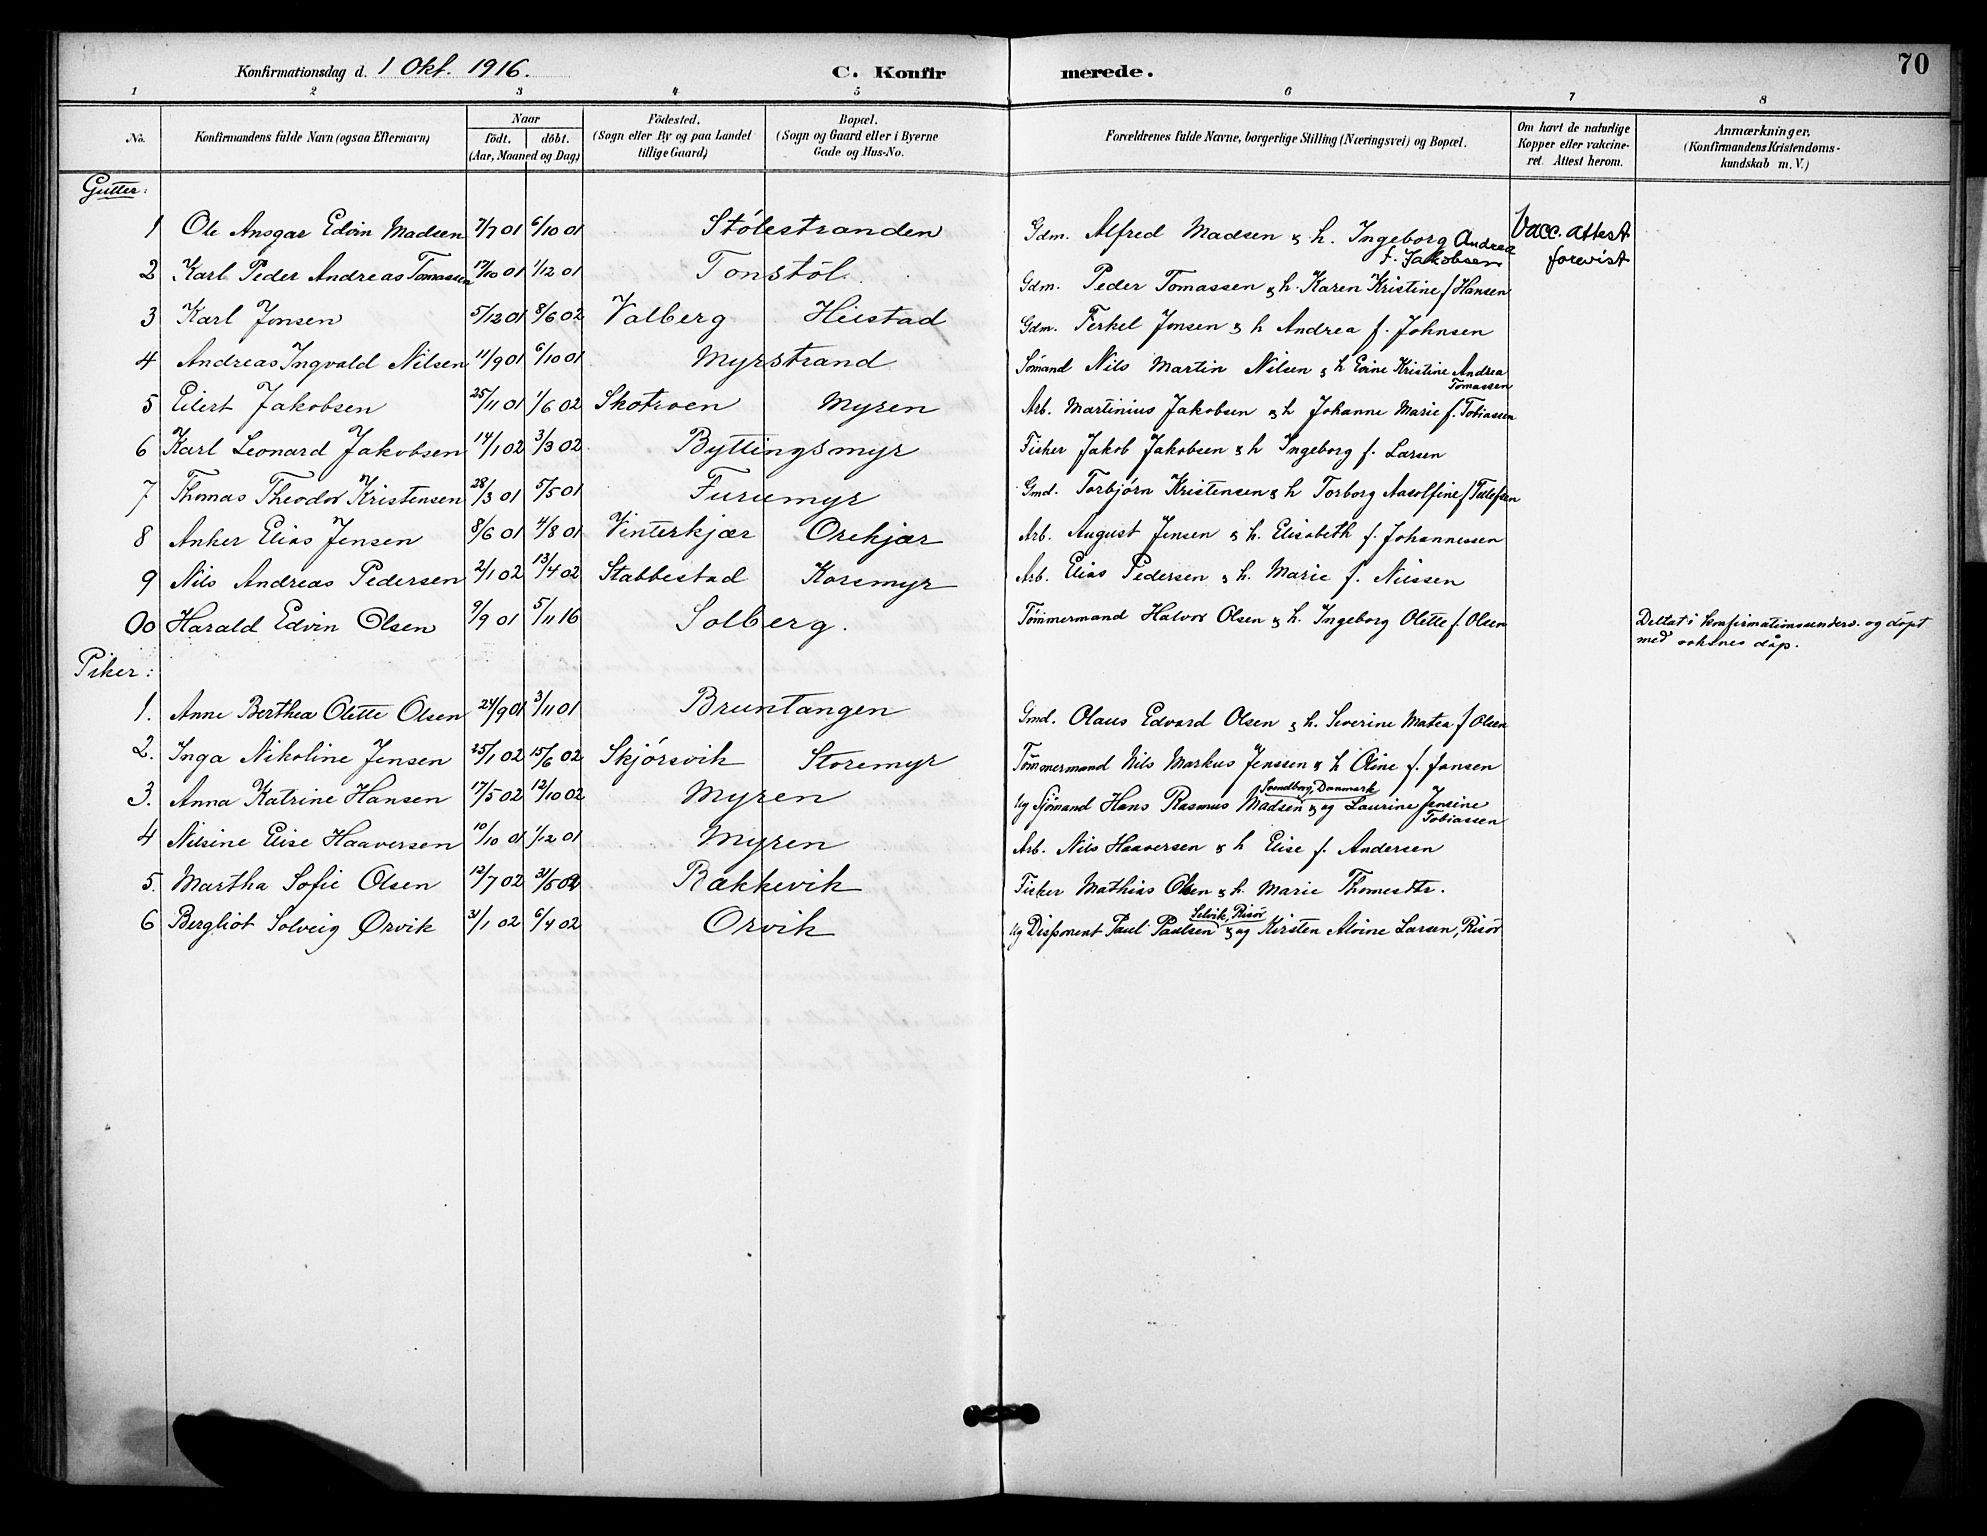 Konfirmationsdag d. 1 Okt. 1916. C. Konfirmerede. 70
1 2 3 4 5 6 7 8
No. Konfirmandens fulde Navn (ogsaa Efternavn) Naar født. døbt. (Aar, Maaned og Dag) Födested. (Sogn eller By og paa Landet tillige Gaard) Bopæl. (Sogn og Gaard eller i Byerne Gade og Hus-No. Forældrenes fulde Navne, borgerlige Stilling (Næringsvei) og Bopæl. Om havt de naturlige Kopper eller vakcineret. Attest herom. Anmærkninger, (Konfirmandens Kristendomskundskab m. V.)
Gutter:
1 Ole Ansgar Edvin Madsen 7/7 01 6/10 01 Stölestranden Gdm. Alfred Madsen & h. Ingeborg Andrea f. Jakobsen Vacc. attest forevist
2 Karl Peder Andreas Tomassen 17/10 01 1/12 01 Tonstöl Gdm. Peder Tomassen & h. Karen Kristine f Hansen
3 Karl Jonsen 5/12 01 8/6 02 Valberg Heistad Gdm. Terkel Jonsen & h Andrea f. Johnsen
4 Andreas Ingvald Nilsen 11/9 01 6/10 01 Myrstrand Sömand Nils Martin Nilsen & h Evine Kristine Andrea Tomassen
5 Eilert Jakobsen 25/11 01 1/6 02 Skotroen Myren Arb. Martinius Jakobsen & h Johanne Marie f. Tobiassen
6 Karl Leonard Jakobsen 14/1 02 3/3 02 Byttingsmyr Fisker Jakob Jakobsen & h Ingeborg f. Larsen
7 Thomas Theodor Kristensen 28/3 01 5/5 01 Furumyr Gmd. Torbjørn Kristensen & h Torborg Aasolfine f Tellefsen
8 Anker Elias Jensen 8/6 01 4/8 01 Vinterkjær Orekjær Arb. August Jensen & h. Elisabeth f. Johannessen
9 Nils Andreas Pedersen 2/1 02 13/4 02 Stabbestad Korsmyr Arb. Elias Pedersen & h. Marie f. Nilssen
00 Harald Edvin Olsen 9/9 01 5/11 16 Solberg. Tömmermand Halvor Olsen & h. Ingeborg Olette f. Olsen Deltat i konfirmationsunderv. og döpt med voksnes dåp.
Piker:
1. Anne Berthea Olette Olsen 24/9 01 3/11 01 Bruntangen Gmd. Olaus Edvard Olsen & h. Severine Matea f Olsen
2. Inga Nikoline Jensen 25/1 02 15/6 02 Skjörsvik Storemyr Tömmermand Nils Markus Jenssen & h Oline f. Jansen
3. Anna Katrine Hansen 17/5 02 12/10 02 Myren Ug Sjömand Hans Rasmus Madsen Svendborg, Danmark & ug Laurine Jensine Tobiassen
4 Nilsine Elise Haaversen 10/10 01 1/12 01 Myren Arb. Nils Haaversen & h Elise f. Andersen
5. Martha Sofie Olsen 12/7 02 31/8 02 Rakkevik Fisker Mathias Olsen & h. Marie Thomesdtr.
6 Bergliot Solveig Ørvik 31/1 02 6/4 02 Orvik Ug Disponent Paul Paulsen Lelvik, Risör & ug Kirsten Alvine Larsen, Risör